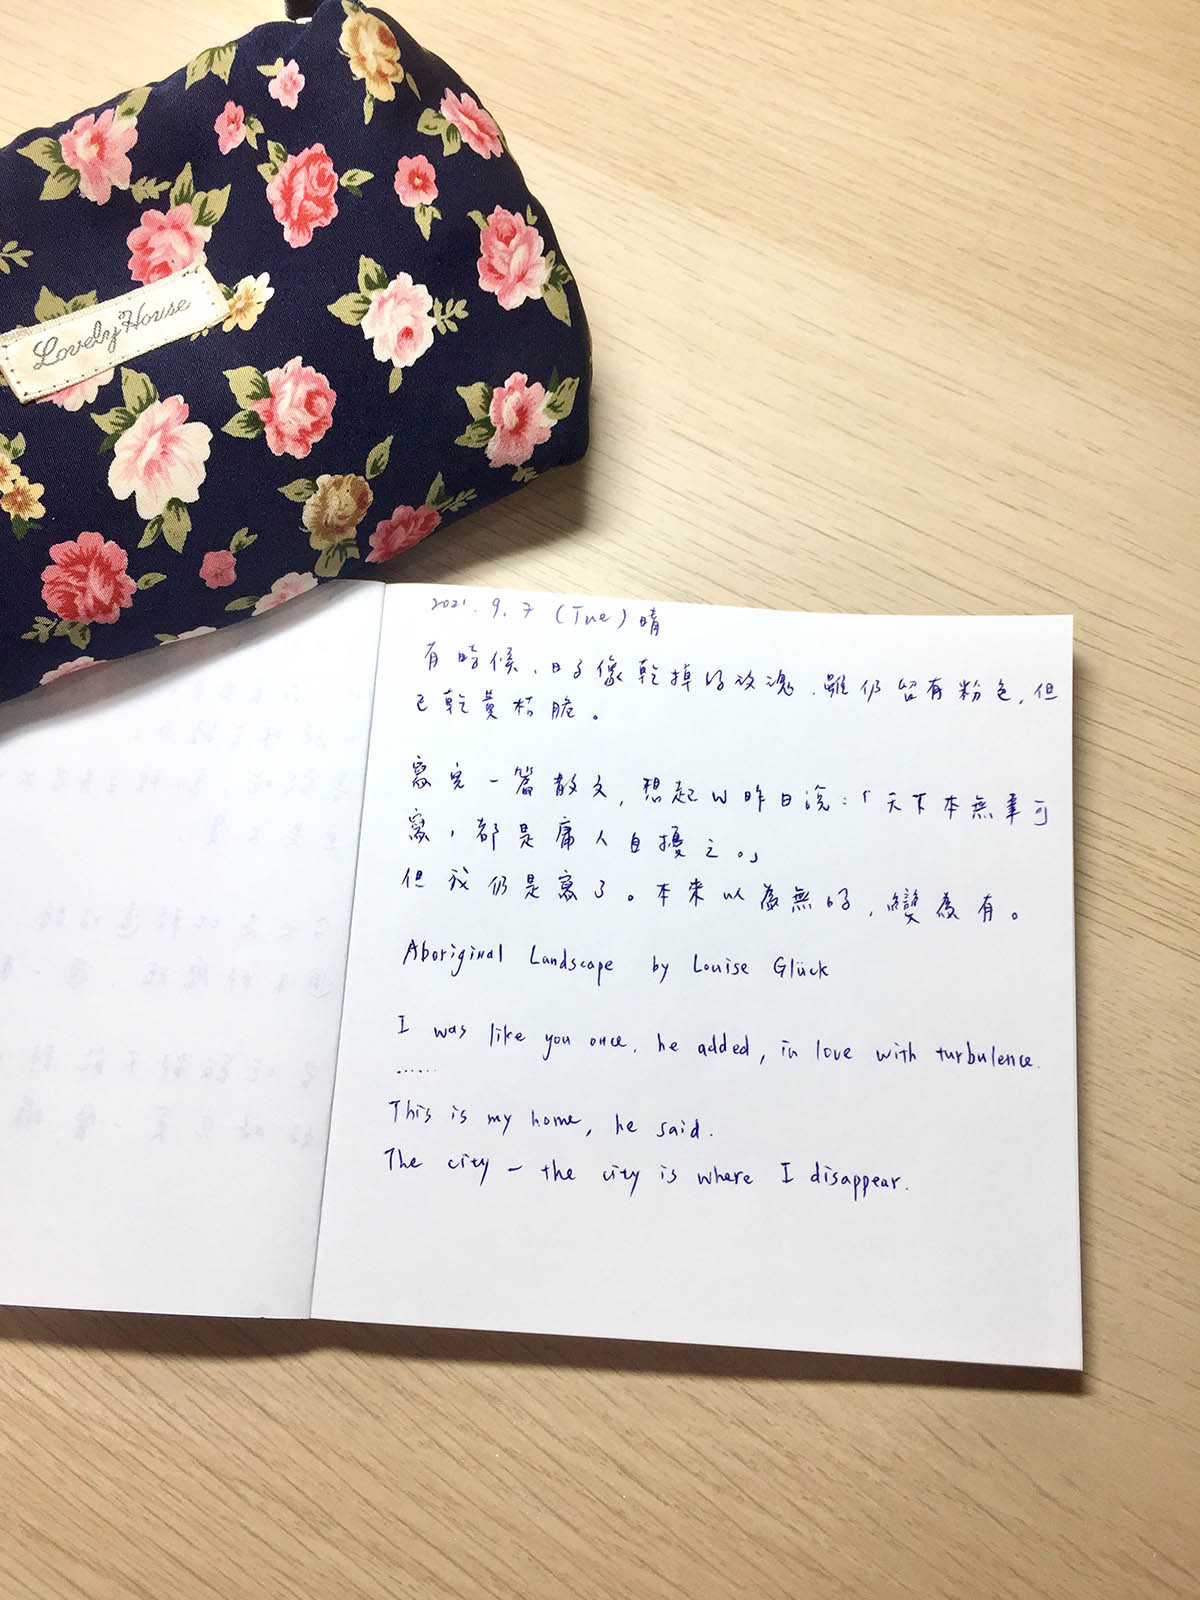 Lovely House
2021. 9. 7 (Tue) 晴
有時候，日子像乾掉的玫瑰，雖仍留有粉色，但
已乾黃枯脆。
寫完一篇散文，想起W昨日說：「天下本無事可
寫，都是庸人自擾之。」
但我仍是寫了。本來以為無的，變為有。
Aboriginal Landscape by Louise Glück
I was like you once, he added, in love with turbulence.
......
This is my home, he said.
The city — the city is where I disappear.